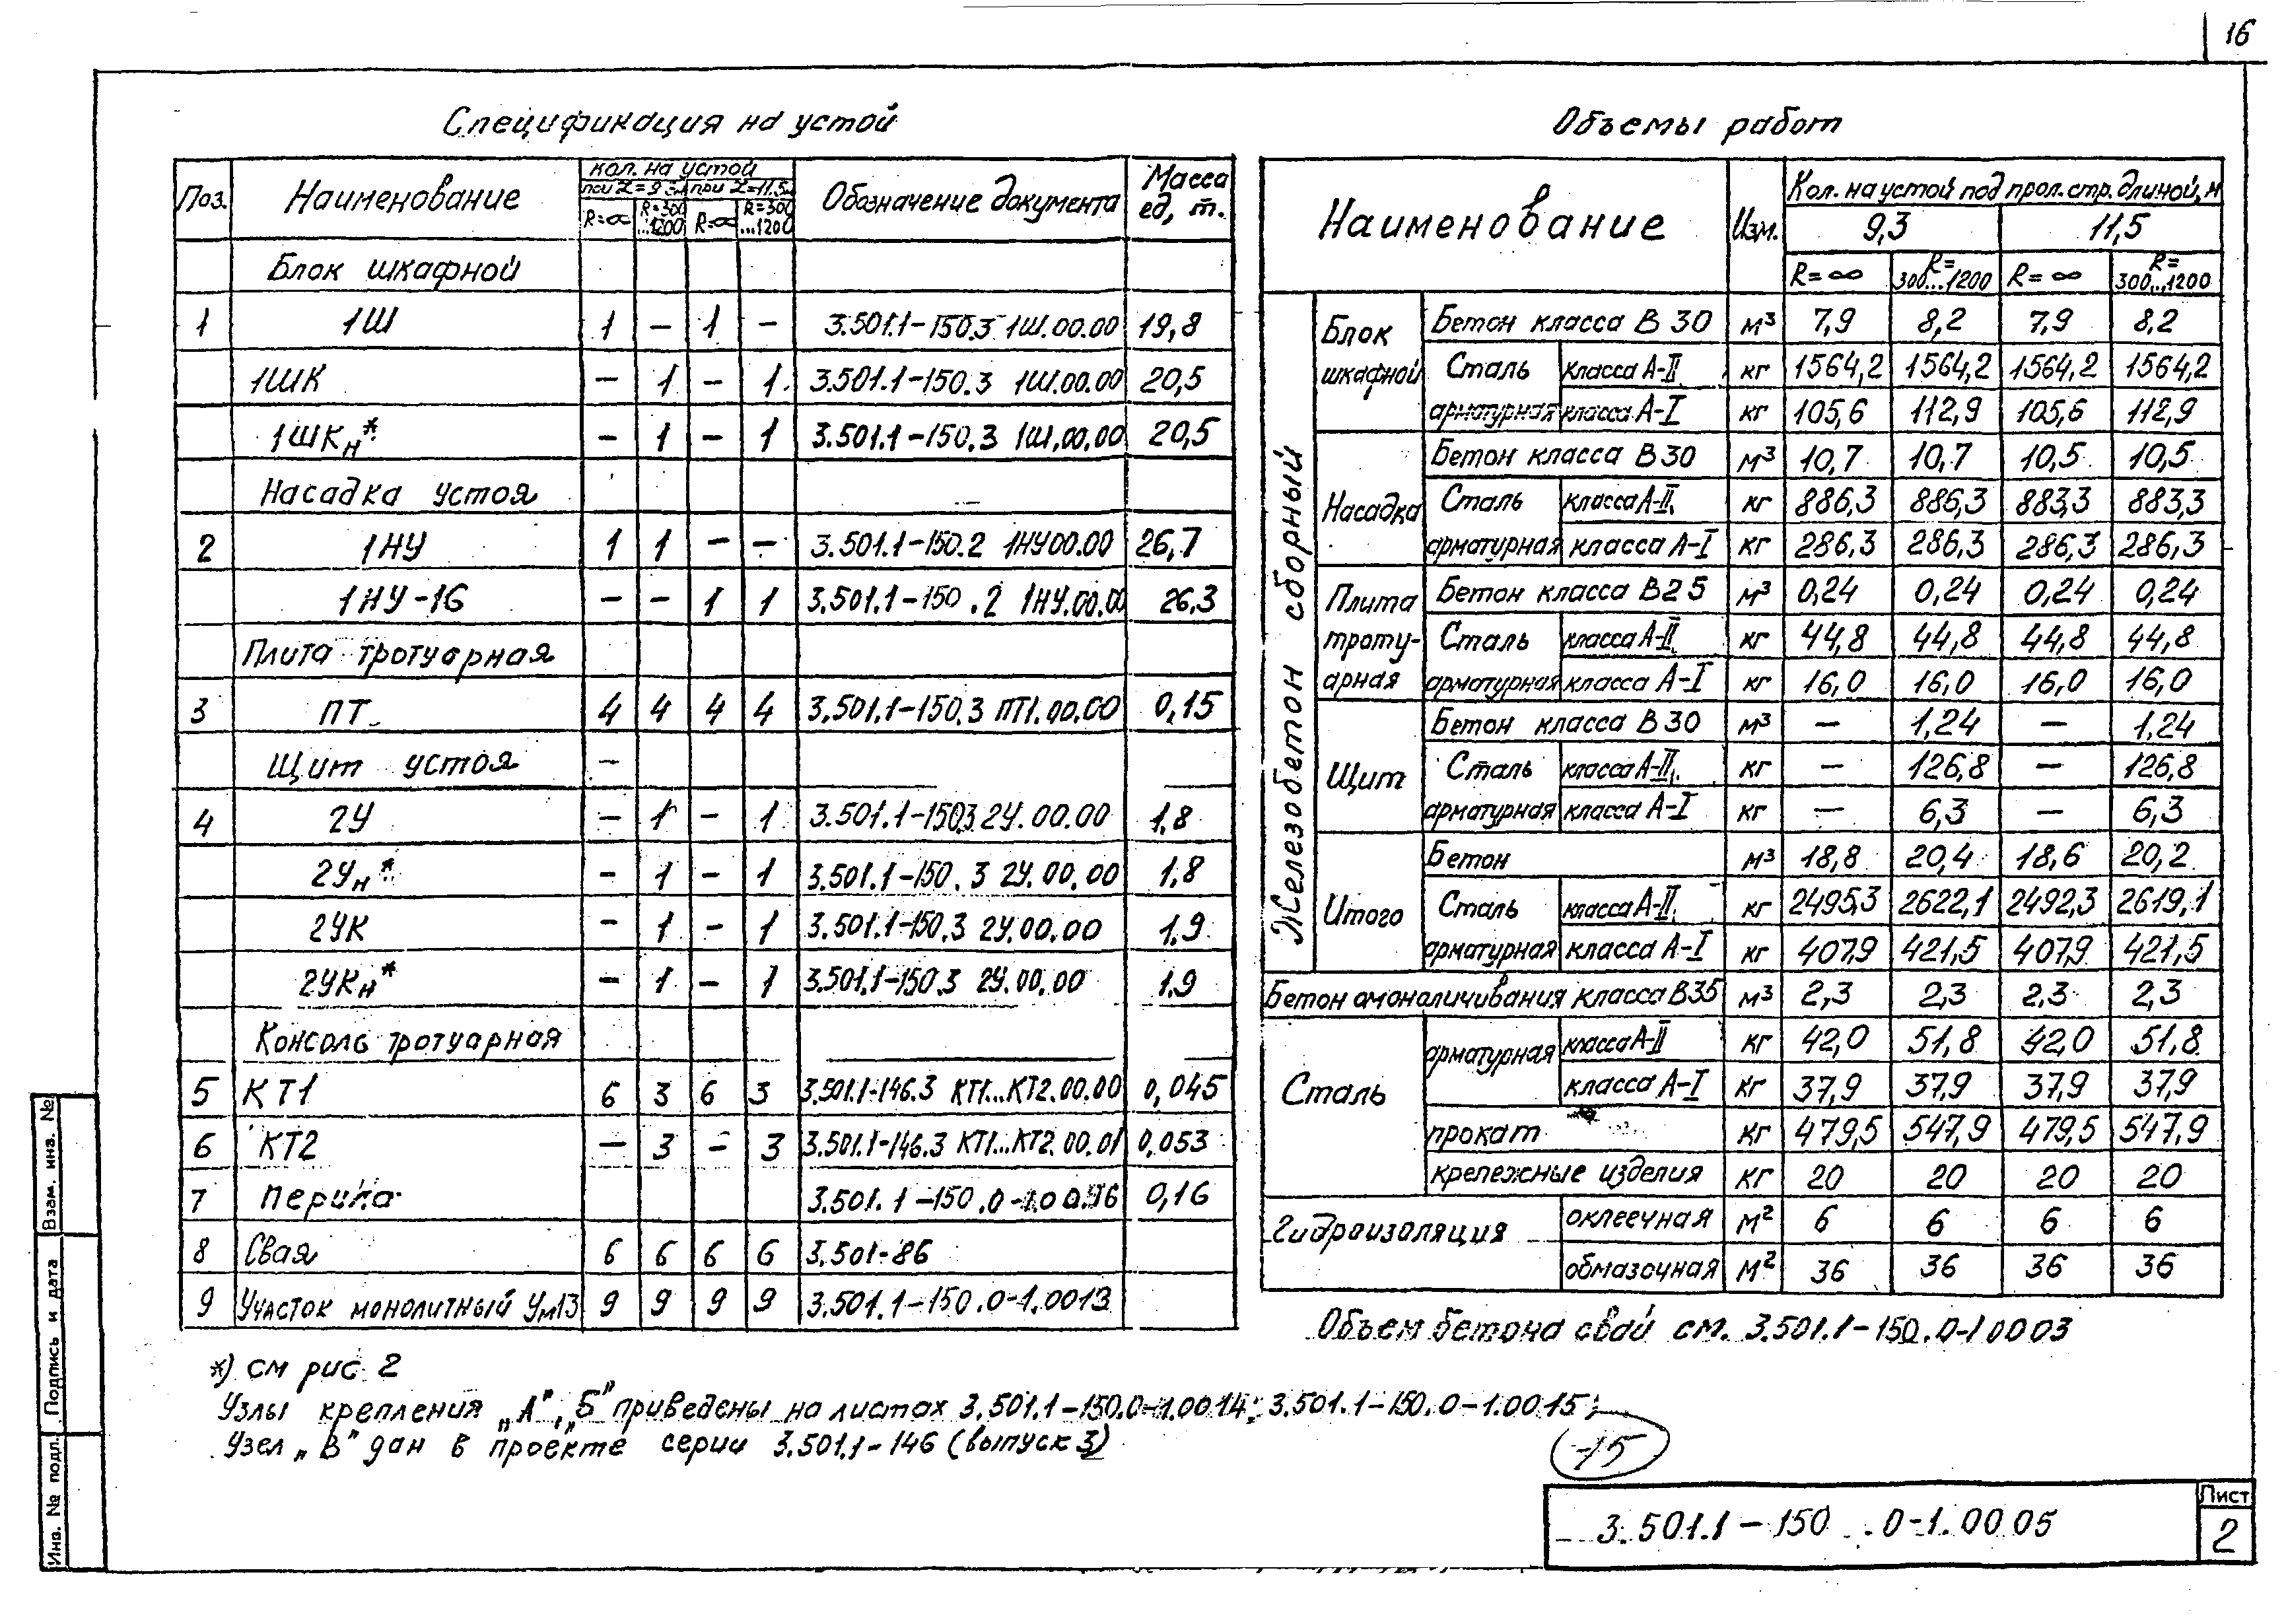 16
Спецификация на устой
Поз. Наименование кол. на устой Обозначение документа Масса ед, т.
R=∞ R=300 ...1200 R=∞ R=300 ...1200
Блок шкафной
1 1Ш 1 – 1 – 3.501.1-150.3 1Ш.00.00 19,8
1ШК – 1 – 1 3.501.1-150.3 1Ш.00.00 20,5
1ШКн* – 1 – 1 3.501.1-150.3 1Ш.00.00 20,5
Насадка устоя
2 1НУ 1 1 – – 3.501.1-150.2 1НУ00.00 26,7
1НУ-1б – – 1 1 3.501.1-150.2 1НУ.00.00 26,3
Плита тротуарная
3 ПТ 4 4 4 4 3.501.1-150.3 ПТ1.00.00 0,15
Щит устоя –
4 2У – 1 – 1 3.501.1-150.3 2У.00.00 1,8
2Ун* – 1 – 1 3.501.1-150.3 2У.00.00 1,8
2УК – 1 – 1 3.501.1-150.3 2У.00.00 1.9
2УКн* – 1 – 1 3.501.1-150.3 2У.00.00 1.9
Консоль тротуарная
5 КТ1 6 3 6 3 3.501.1-146.3 КТ1...КТ2.00.00 0,045
6 КТ2 – 3 – 3 3.501.1-146.3 КТ1...КТ2.00.01 0,053
7 Перила 3.501.1-150.0-1.00 0,16
8 Свая 6 6 6 6 3.501-86
9 Участок монолитный Ум13 9 9 9 9 3.501.1-150.0-1.0013
*) см рис 2
Узлы крепления „А", „Б" приведены на листах 3.501.1-150.0-1.0014; 3.501.1-150.0-1.0015;
Узел „В" дан в проекте серии 3.501.1-146 (выпуск 3)
Объемы работ
Наименование Изм. Кол. на устой под прол. стр. длиной, м
9,3 11,5
R=∞ R= 300...1200 R=∞ R= 300...1200
Железобетон сборный
Блок шкафной Бетон класса В 30 м³ 7,9 8,2 7,9 8,2
Сталь арматурная класса А-II кг 1564,2 1564,2 1564,2 1564,2
класса А-I кг 105,6 112,9 105,6 112,9
Насадка Бетон класса В30 м³ 10,7 10,7 10,5 10,5
Сталь арматурная класса А-II кг 886,3 886,3 883,3 883,3
класса А-I кг 286,3 286,3 286,3 286,3
Плита тротуарная Бетон класса В25 м³ 0,24 0,24 0,24 0,24
Сталь арматурная класса А-II кг 44,8 44,8 44,8 44,8
класса А-I кг 16,0 16,0 16,0 16,0
Щит Бетон класса В30 м³ – 1,24 – 1,24
Сталь арматурная класса А-II кг – 126,8 – 126,8
класса А-I кг – 6,3 – 6,3
Итого Бетон м³ 18,8 20,4 18,6 20,2
Сталь арматурная класса А-II кг 2495,3 2622,1 2492,3 2619,1
класса А-I кг 407,9 421,5 407,9 421,5
Бетон омоноличивания класса В35 м³ 2,3 2,3 2,3 2,3
Сталь арматурная класса А-II кг 42,0 51,8 42,0 51,8
класса А-I кг 37,9 37,9 37,9 37,9
прокат кг 479,5 547,9 479,5 547,9
крепежные изделия кг 20 20 20 20
Гидроизоляция оклеечная м² 6 6 6 6
обмазочная м² 36 36 36 36
Объем бетона свай см. 3.501.1-150.0-1.0003
15
3.501.1-150.0-1.0005
Лист
2
Взам. инв. №
Подпись и дата
Инв. № подл.